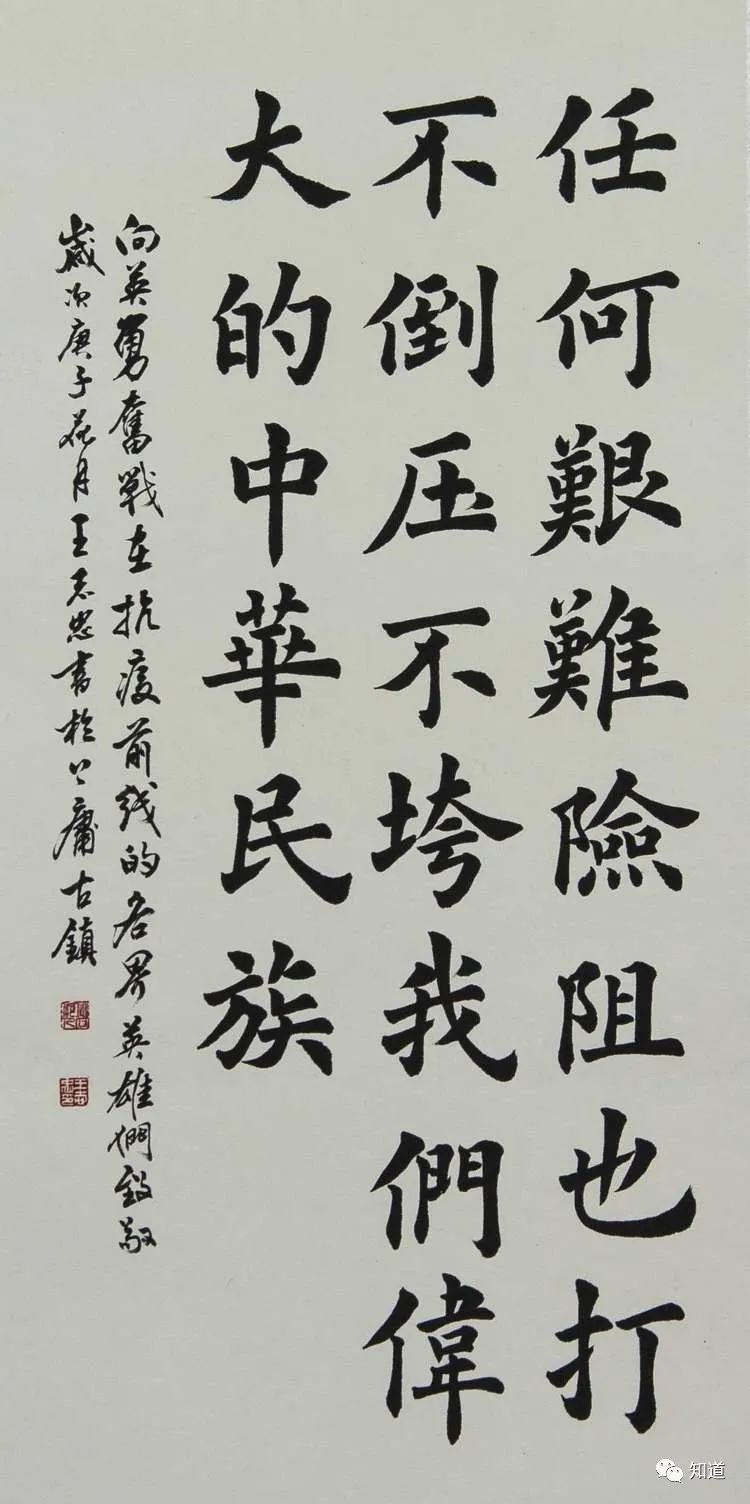 任何艱難險阻也打
不倒压不垮我們偉
大的中華民族
向英勇奮戰在抗疫前线的各界英雄們致敬
歲次庚子花月王志忠書於上庸古鎮
知道